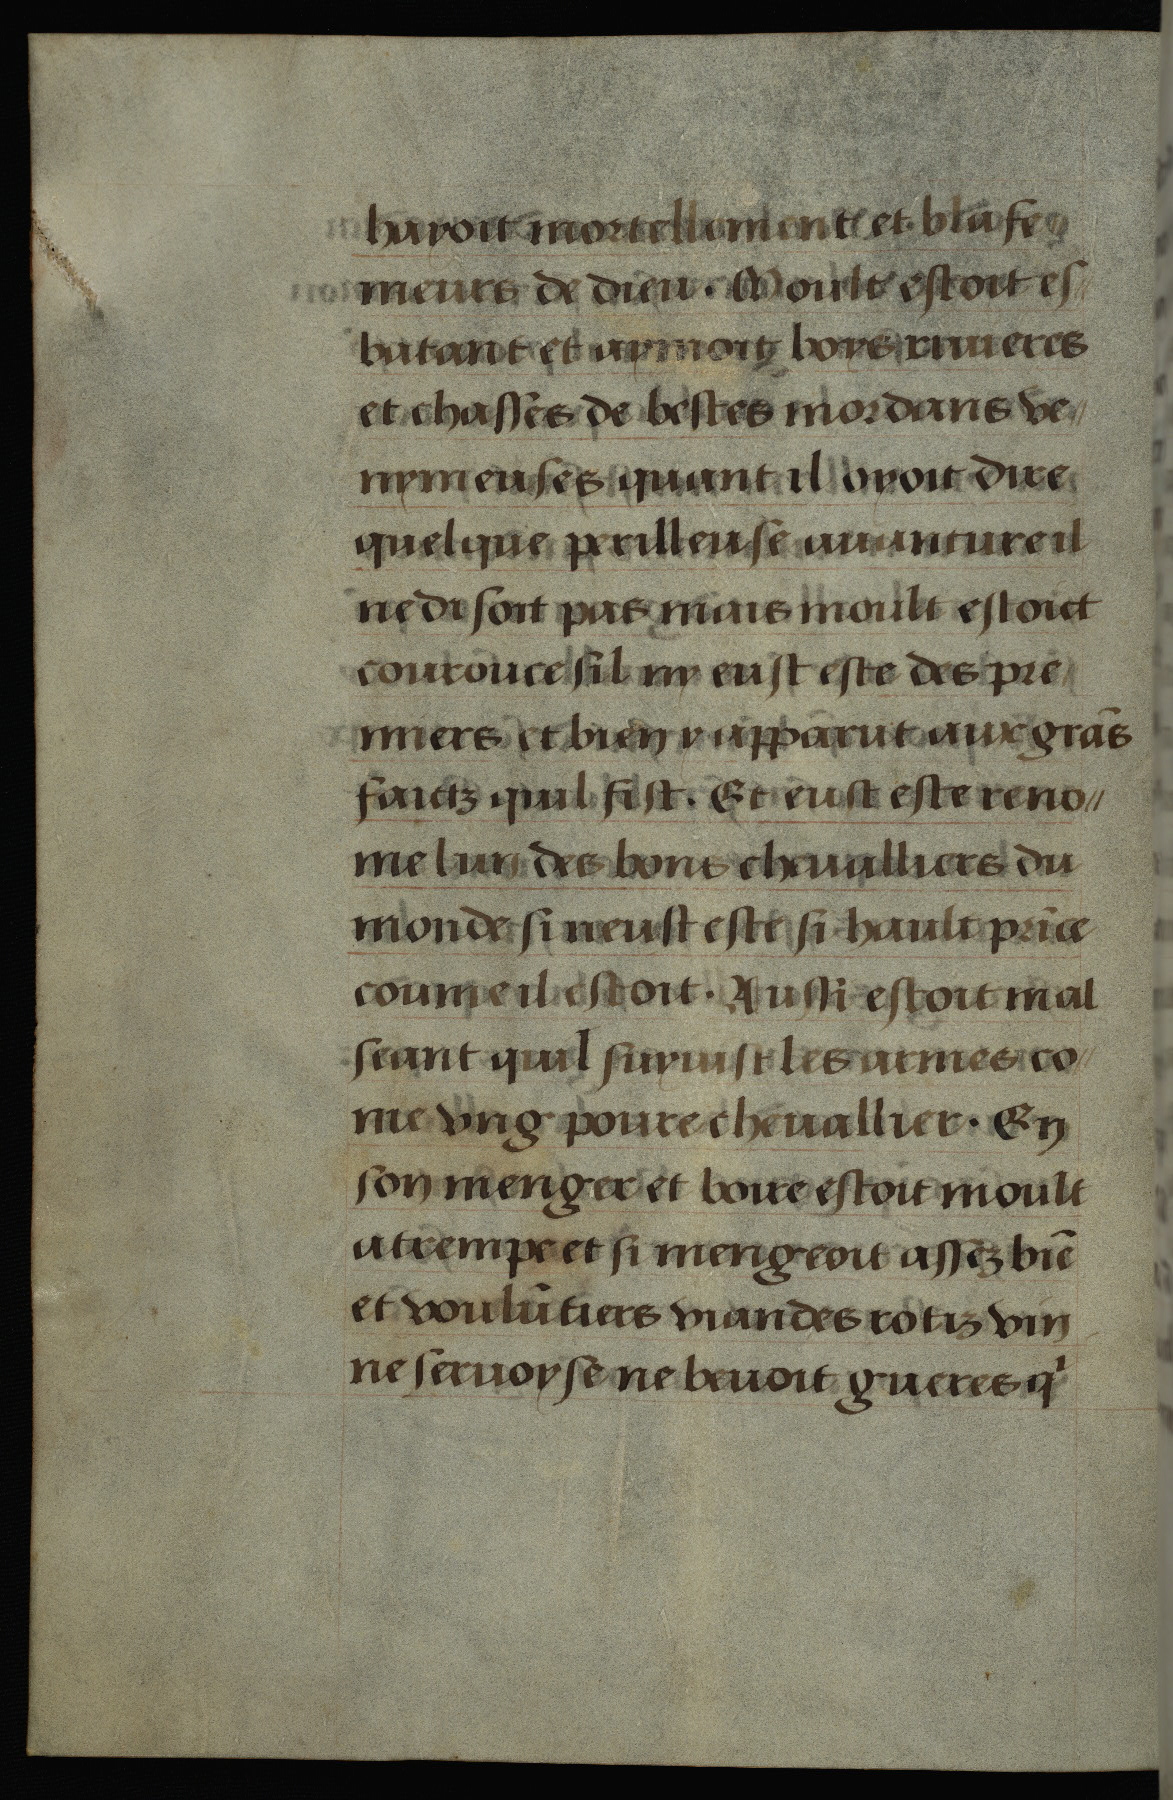 hayoit mortellement et blafe
meurs de dieu. Moult estoit es
batant et aymoit boys riuieres
et chasses de bestes mordans ve
nymeuses quant il oyoit dire
quelque perilleuse auanture il
ne disoit pas mais moult estoict
courouce sil ny eust este des pre
miers et bien y apparut aux grās
faictz quil fist. Et eust este reno
me lun des bons cheualliers du
monde si neust este si hault prīce
coume il estoit. Aussi estoit mal
seant quil suyuist les armes co
me vng poure cheuallier. En
son menger et boire estoit moult
atrempe et si mengeoit assez biē
et voulūtiers viandes rotiz vin
ne seruoyse ne beuoit gueres qⁱ